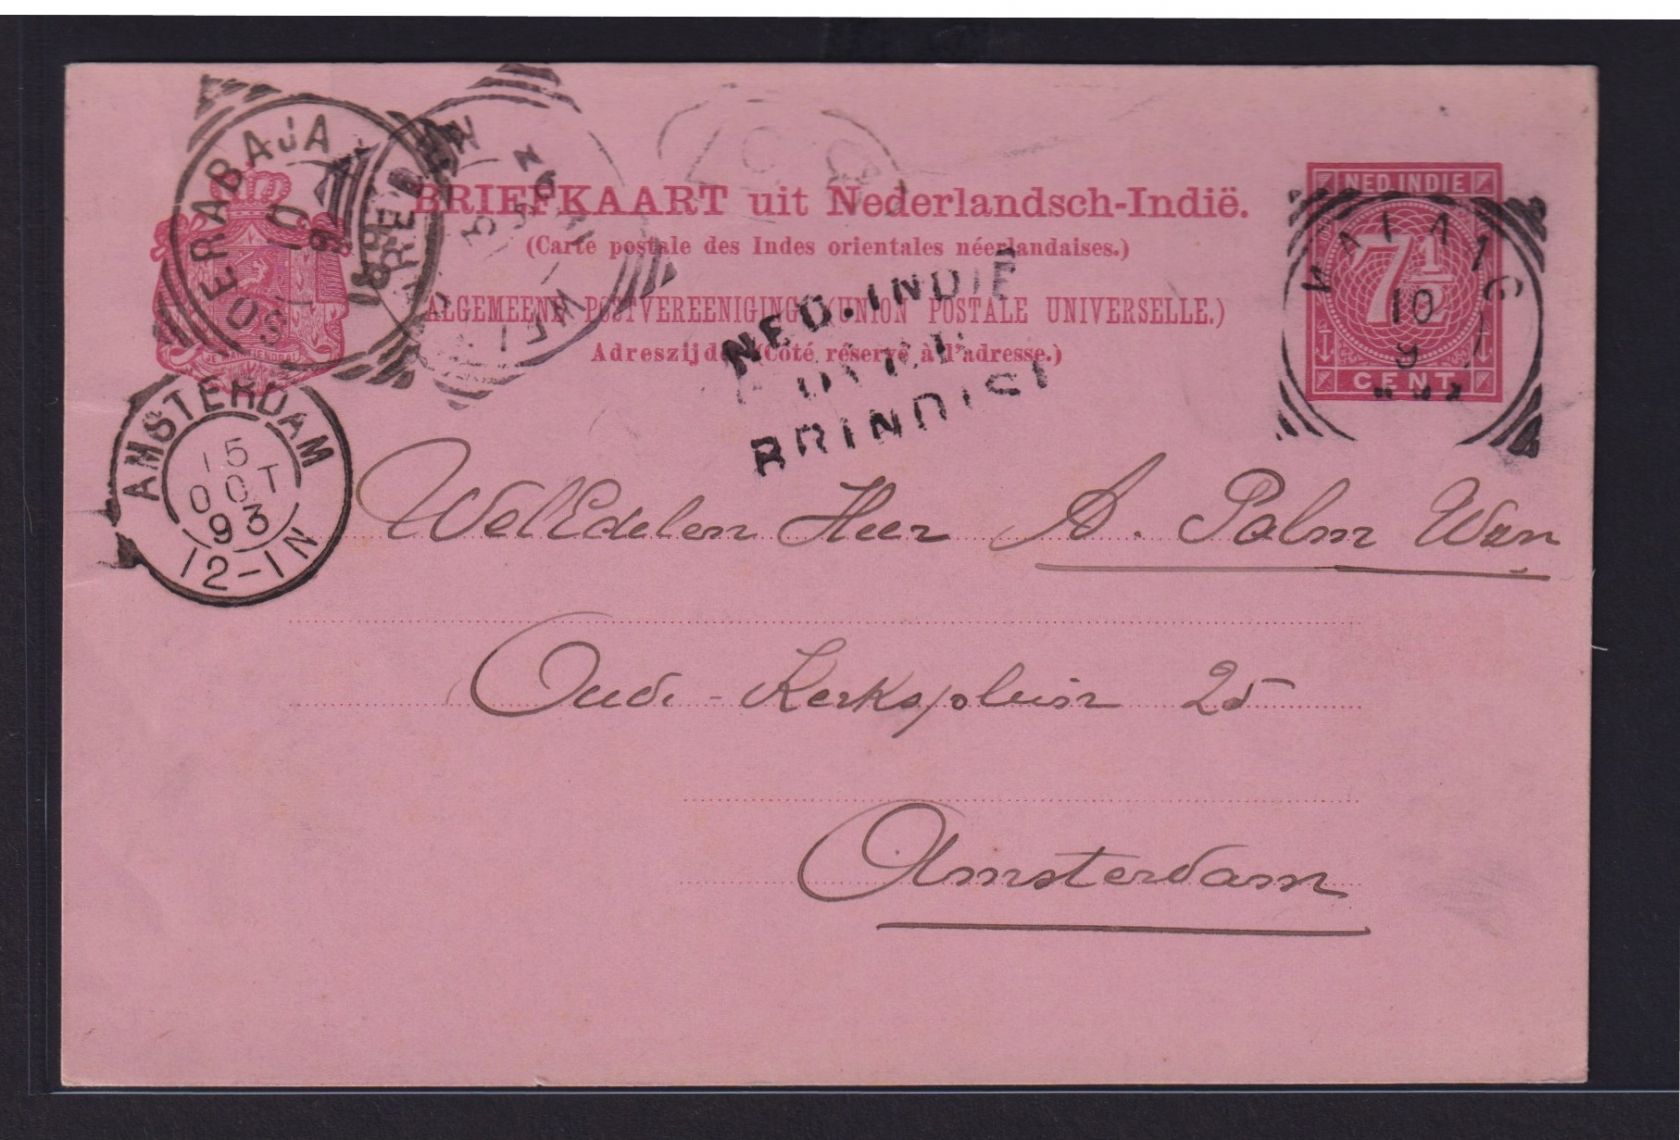 BRIEFKAART uit Nederlandsch-Indië.
(Carte postale des Indes orientales néerlandaises.)
(ALGEMEENE POSTVEREENIGING (UNION POSTALE UNIVERSELLE.)
Adreszijde (Côté réservé à l'adresse.)
SOERABAJA
10
9
1893
WELTEVREDEN
NED. INDIË
OVER
BRINDISI
NED. INDIE
7½
CENT
10
9
AMSTERDAM
15
OCT
93
12-1N
WelEdelen Heer A. Palm Wzn
Oude-Kerksplein 25
Amsterdam